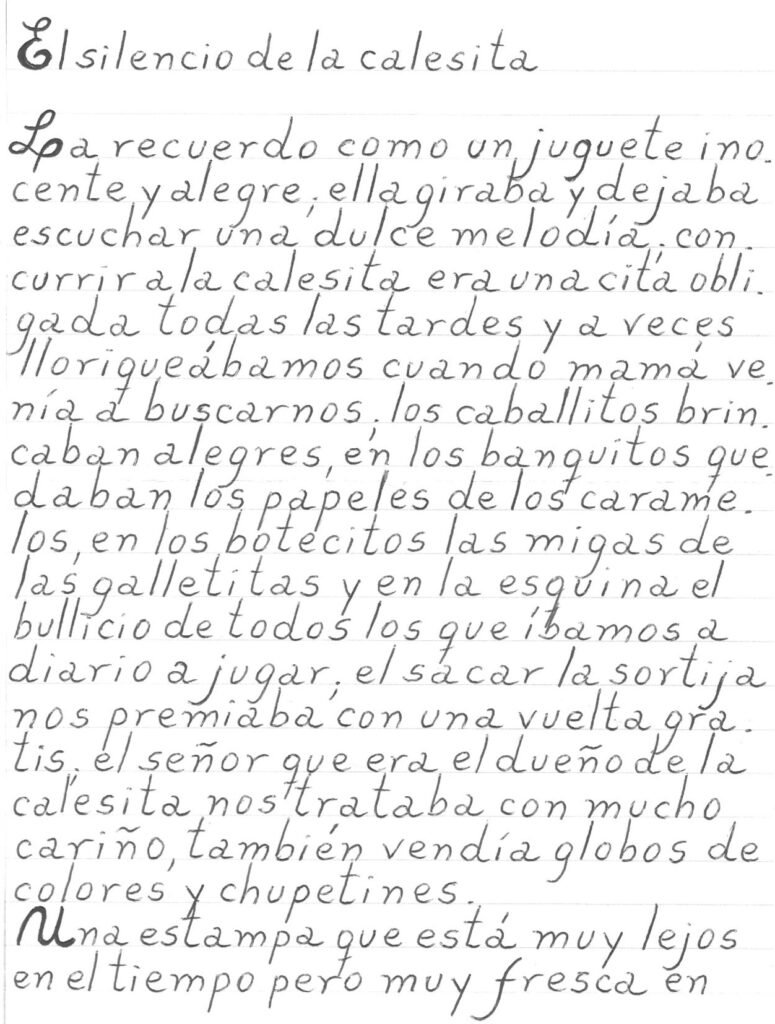 El silencio de la calesita
La recuerdo como un juguete ino-
cente y alegre; ella giraba y dejaba
escuchar una dulce melodía; con-
currir a la calesita era una cita obli-
gada todas las tardes y a veces
lloriqueábamos cuando mamá ve-
nía a buscarnos; los caballitos brin-
caban alegres, en los banquitos que-
daban los papeles de los carame-
los, en los botecitos las migas de
las galletitas y en la esquina el
bullicio de todos los que íbamos a
diario a jugar; el sacar la sortija
nos premiaba con una vuelta gra-
tis; el señor que era el dueño de la
calesita nos trataba con mucho
cariño, también vendía globos de
colores y chupetines.
Una estampa que está muy lejos
en el tiempo pero muy fresca en